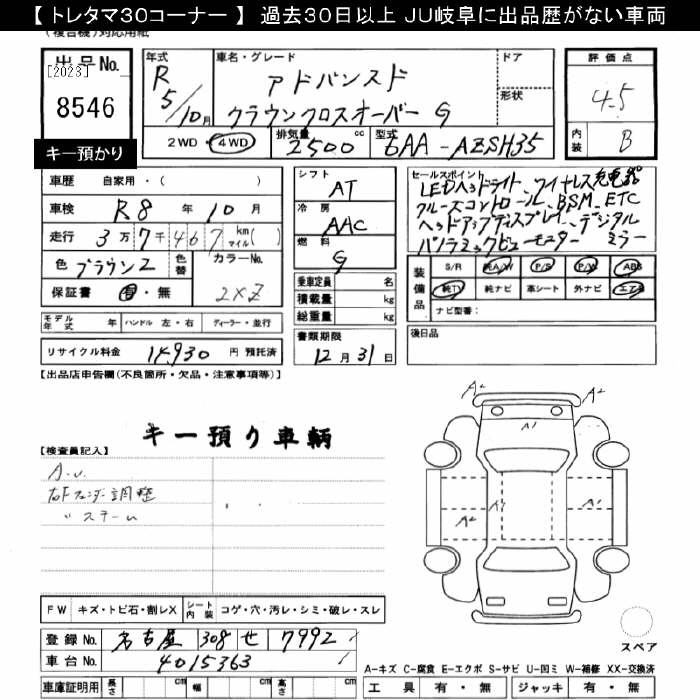 【 トレタマ30コーナー 】 過去30日以上 JU岐阜に出品歴がない車両
(複合機)対応用紙
出品No.
[2023]
8546
キー預かり
年式
R
5/10月
車名・グレード
アドバンスド
クラウンクロスオーバー G
ドア
形状
2WD・4WD
排気量
2500 cc
型式
6AA - AZSH35
評価点
4.5
内装
B
車歴 自家用・( )
車検 R8 年 10 月
走行 3万7千467 km マイル( )
色 ブラウン2 色替 カラーNo.
保証書 有・無 2XZ
モデル年式 年 ハンドル 左・右 ディーラー・並行
リサイクル料金 14,930 円 預託済
シフト
AT
冷房
AAC
燃料
G
乗車定員 名
積載量 kg
総重量 kg
書類期限
12月31日
セールスポイント
LEDヘッドライト、ワイヤレス充電器
クルーズコントロール、BSM、ETC
ヘッドアップディスプレイ、デジタル
パノラミックビューモニター ミラー
装備品
S/R 純A/W P/S P/W ABS
純TV 純ナビ 革シート 外ナビ エアB
ナビ型番:
後日品
【出品店申告欄(不良箇所・欠品・注意事項等)】
キー預り車輌
【検査員記入】
A.U
右Fフェンダー調整
〃 ステール
A2
A2
A1
A2
A1
A1
スペア
FW キズ・トビ石・割レX シート内装 コゲ・穴・汚レ・シミ・破レ・スレ
登録No. 名古屋 308 せ 7992
車台No. 4015363
車庫証明用 長さ cm 幅 cm 高さ cm
A-キズ C-腐食 E-エクボ S-サビ U-凹ミ W-補修 XX-交換済
工具 有・無 ジャッキ 有・無